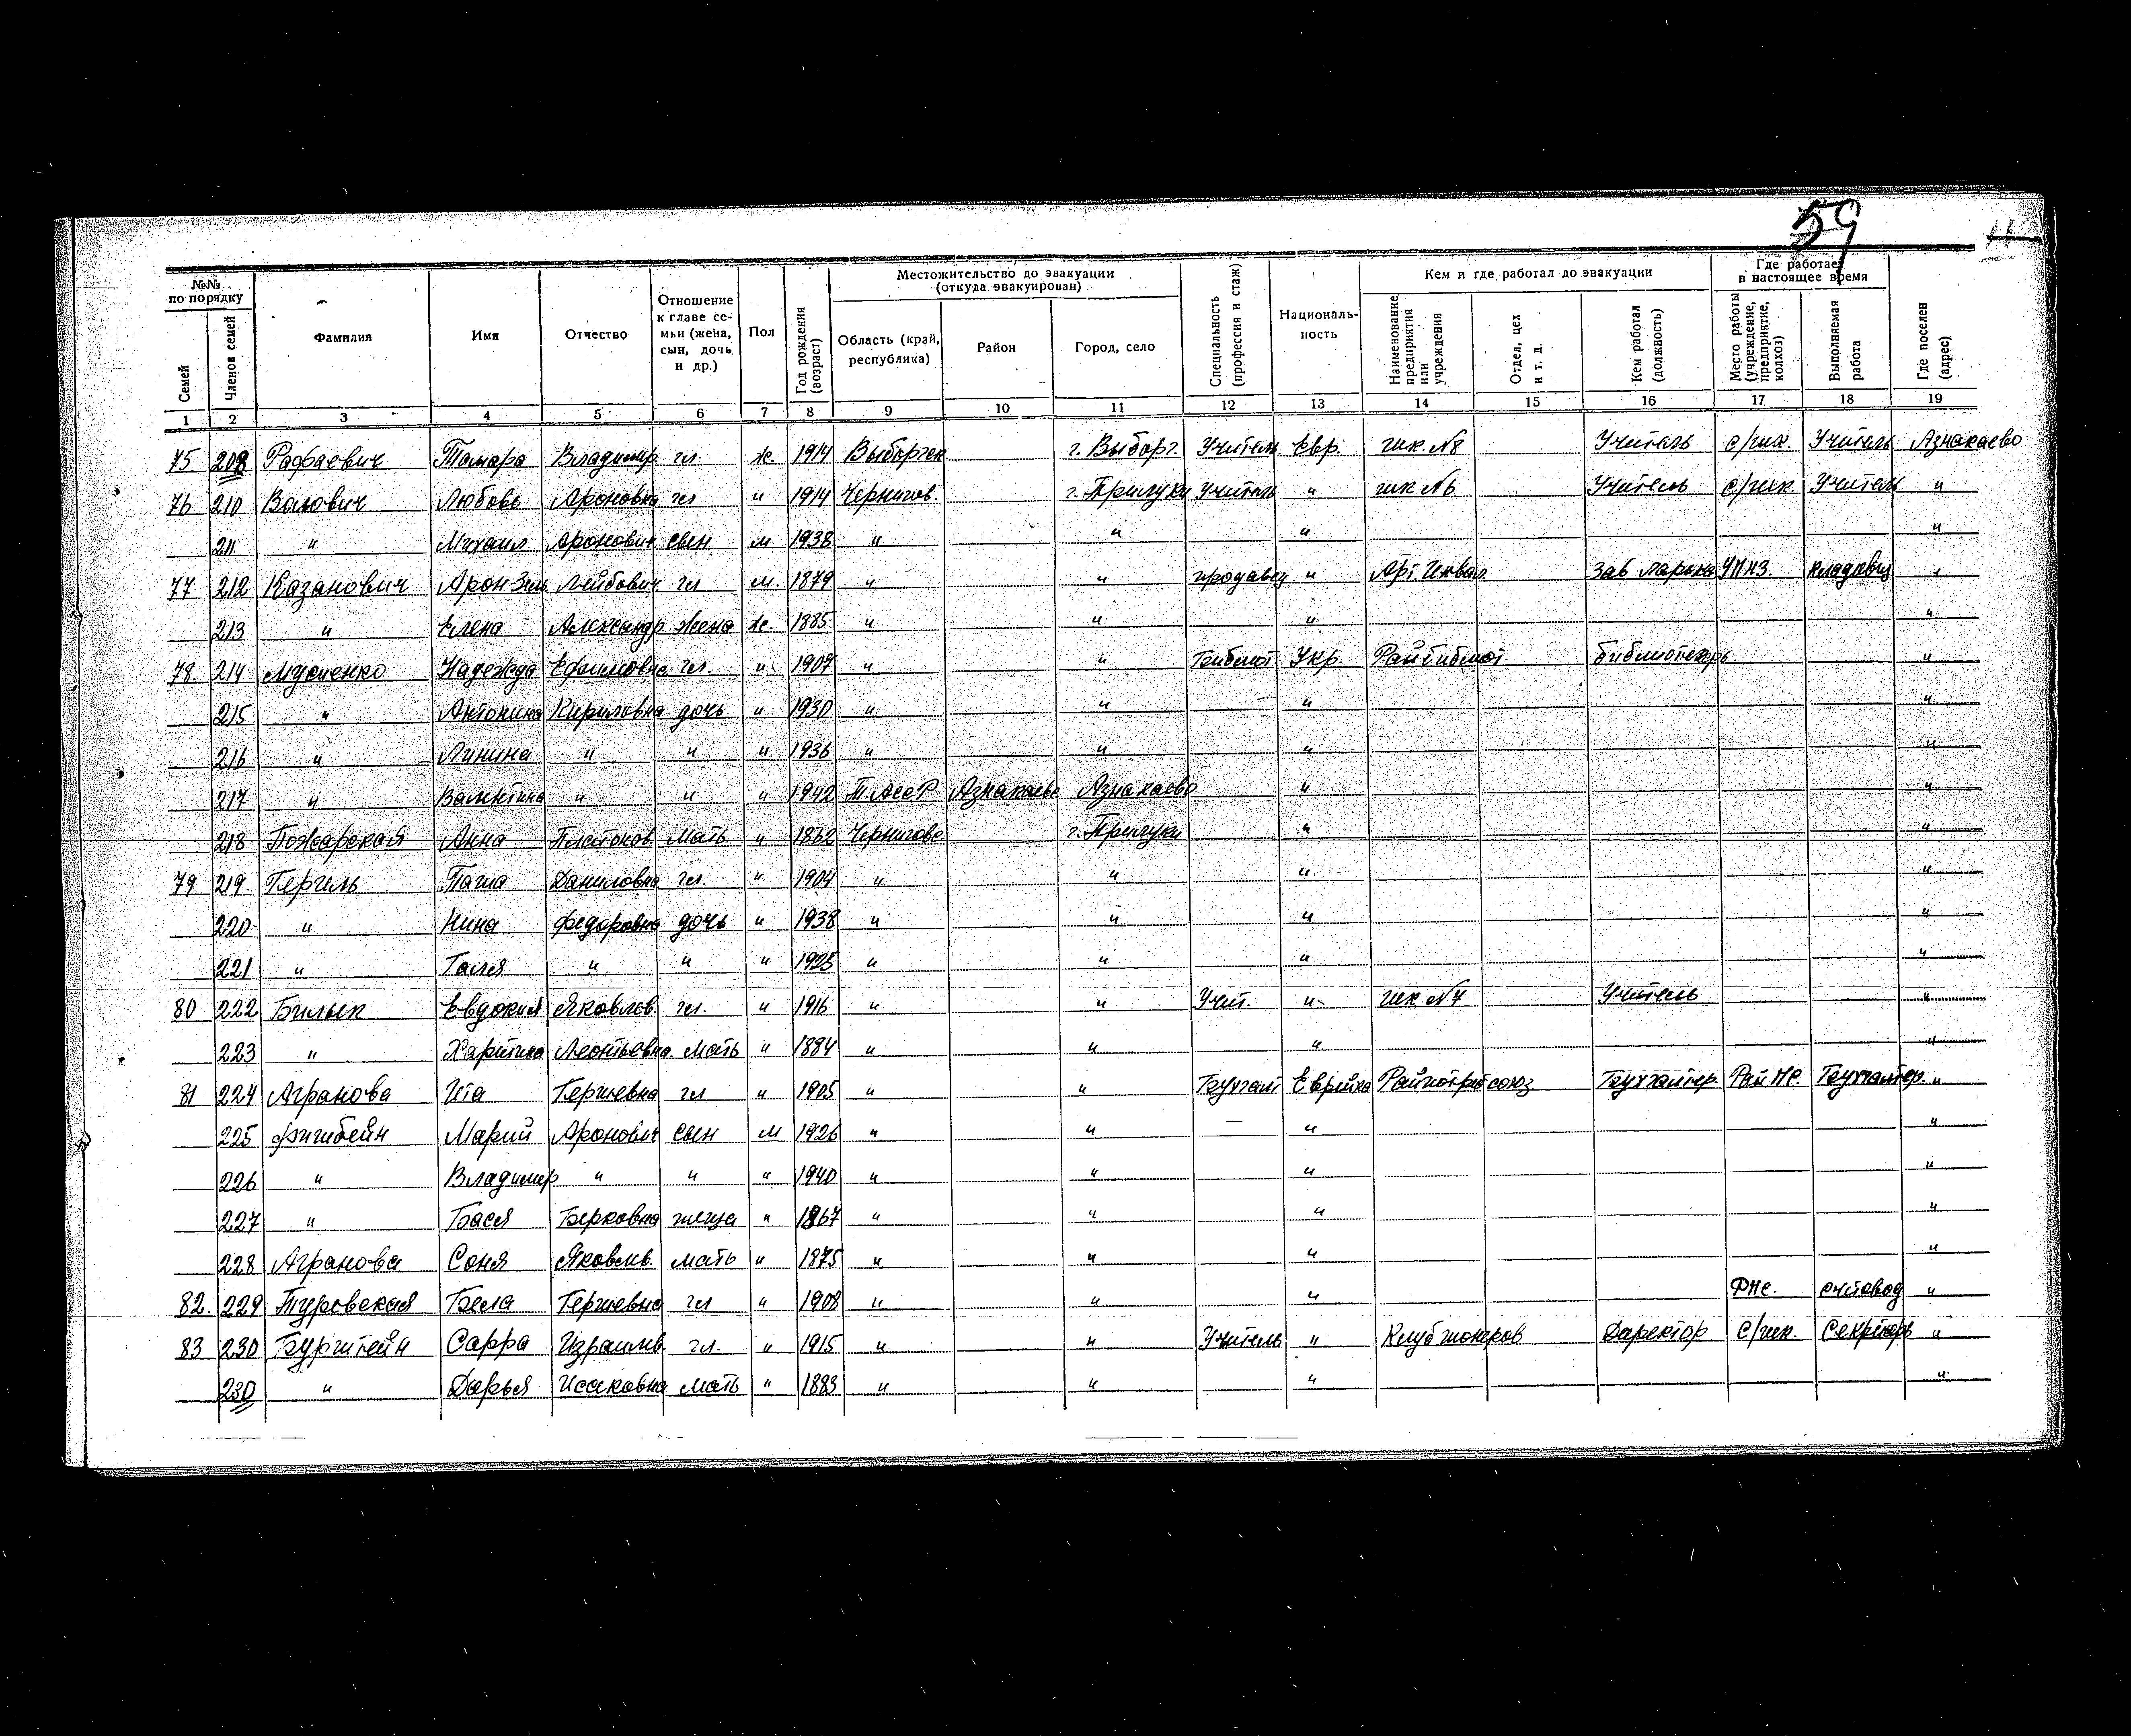 59
№№ по порядку
Семей
Членов семей
Фамилия
Имя
Отчество
Отношение к главе семьи (жена, сын, дочь и др.)
Пол
Год рождения (возраст)
Местожительство до эвакуации (откуда эвакуирован)
Область (край, республика)
Район
Город, село
Специальность (профессия и стаж)
Националь-ность
Кем и где работал до эвакуации
Наименование предприятия или учреждения
Отдел, цех и т. д.
Кем работал (должность)
Где работает в настоящее время
Место работы (учреждение, предприятие, колхоз)
Выполняемая работа
Где поселен (адрес)
1 2 3 4 5 6 7 8 9 10 11 12 13 14 15 16 17 18 19
75 208 Рафаевич Тамара Владимир гл. ж. 1914 Выборгск г. Выборг. Учитель Евр. шк. №8 Учитель с/шк. Учитель Азнакаево
76 210 Валович Любовь Ароновна гл " 1914 Чернигов. г. Прилуки Учитель " шк №6 Учитель с/шк. Учитель "
211 " Михаил Аронович сын м 1938 " " " "
77 212 Казанович Арон-Зел. Лейбович гл м. 1879 " " продавец " Арт. Инвал. Зав ларька кладовщ "
213 " Елена Александр жена ж. 1885 " " " "
78. 214 Мусиенко Надежда Ефимовна гл. " 1907 " " Библиот Укр. Райбиблиот. библиотекарь "
215 " Антонина Кириловна дочь " 1930 " " " "
216 " Линина " " " 1936 " " " "
217 " Валентина " " " 1942 Т.АССР Азнакаево Азнакаево " "
218 Пожарская Анна Платонов. мать " 1862 Чернигов. г. Прилуки " "
79 219. Гергель Паша Даниловна гл. " 1904 " " " "
220 " Нина Федоровна дочь " 1938 " " " "
221 " Галя " " " 1925 " " " "
80 222 Билык Евдокия Яковлев. гл. " 1916 " " Учит. " шк №7 Учитель "
223 " Харитина Леонтьевна мать " 1884 " " " "
81 224 Агранова Ита Гершевна гл " 1905 " " Бухгалт Еврейка Райпотребсоюз Бухгалтер. Бухгалтер. "
225 Фишбейн Марий Аронович сын м 1926 " " " "
226 " Владимир " " " 1940 " " " "
227 " Бася Берковна теща " 1867 " " " "
228 Агранова Соня Яковлев. мать " 1875 " " " "
82. 229 Туровская Бела Гершевна гл " 1908 " " " счетовод "
83 230 Бурштейн Сарра Израилев. гл. " 1915 " " Учитель " Клуб пионеров Директор с/шк. Секретарь "
230 " Дарья Исаковна мать " 1883 " " " "